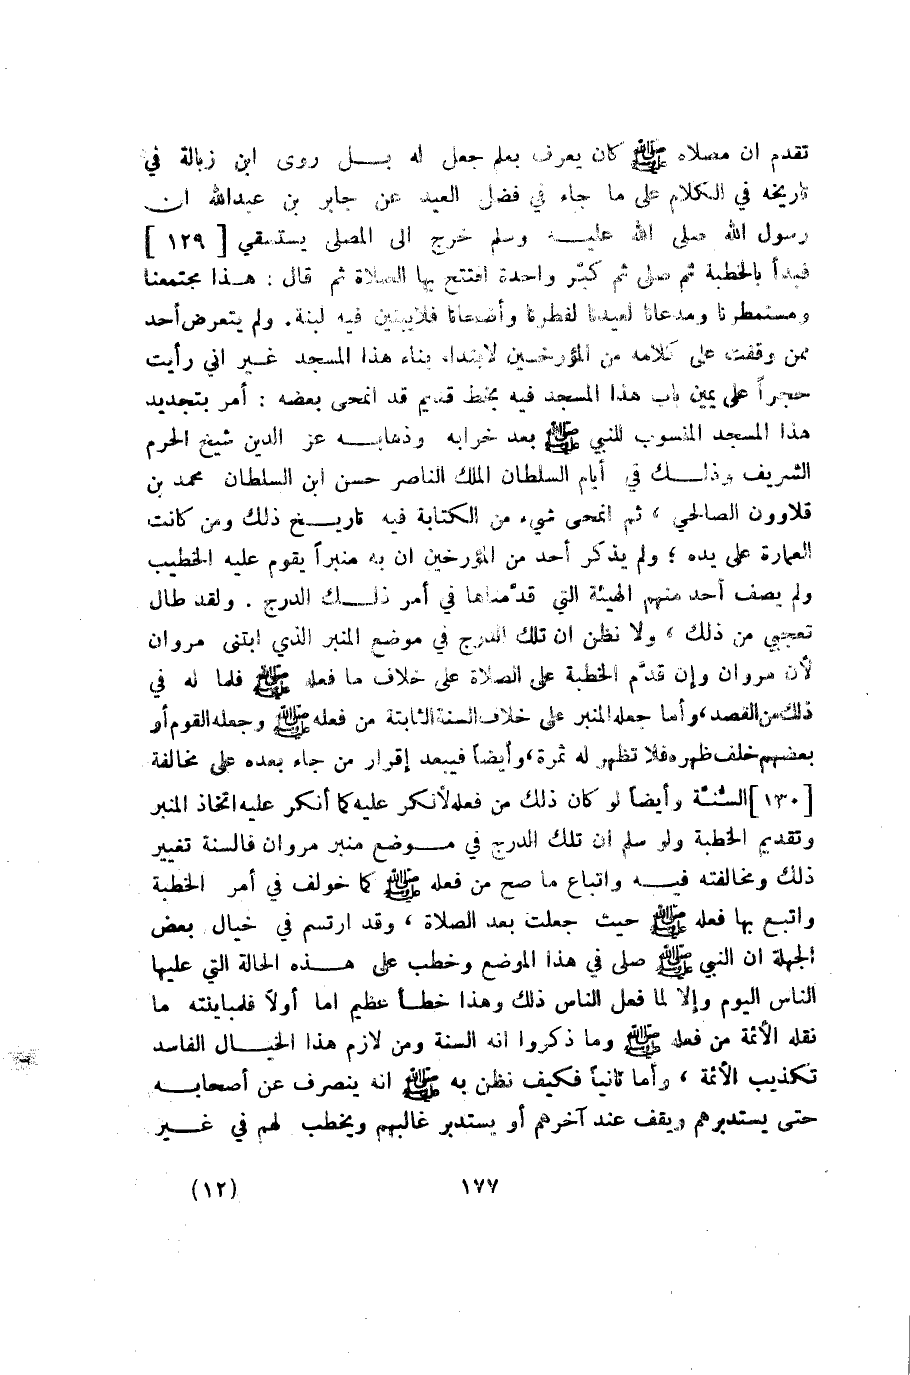 تقدم ان مصلاه ﷺ كان يعرف بعلم جعل له بـــل روى ابن زبالة في
تاريخه في الكلام على ما جاء في فضل العيد عن جابر بن عبدالله ان
رسول الله صلى الله عليــه وسلم خرج الى المصلى يستسقي [ ١٢٩ ]
فبدأ بالخطبة ثم صلى ثم كبّر واحدة افتتح بها الصلاة ثم قال : هــذا مجتمعنا
ومستمطرنا ومدعانا لعيدنا لفطرنا وأضحانا فلايبنين فيه لبنة . ولم يتعرض أحد
ممن وقفت على كلامه من المؤرخين لابتداء بناء هذا المسجد غــير اني رأيت
حجراً على يمين باب هذا المسجد فيه بخط قديم قد انمحى بعضه : أمر بتجديد
هذا المسجد المنسوب للنبي ﷺ بعد خرابه وذهابــه عز الدين شيخ الحرم
الشريف وذلــك في أيام السلطان الملك الناصر حسن ابن السلطان محمد بن
قلاوون الصالحي ، ثم انمحى شيء من الكتابة فيه تاريــخ ذلك ومن كانت
العمارة على يده ؛ ولم يذكر أحد من المؤرخين ان به منبراً يقوم عليه الخطيب
ولم يصف أحد منهم الهيئة التي قدّمناها في أمر ذلــك الدرج . ولقد طال
تعجبي من ذلك ، ولا نظن ان تلك الدرج في موضع المنبر الذي ابتنى مروان
لأن مروان وإن قدّم الخطبة على الصلاة على خلاف ما فعله ﷺ فلما له في
ذلك من القصد، وأما جعله المنبر على خلاف السنة الثابتة من فعله ﷺ وجعله القوم أو
بعضهم خلف ظهره فلا تظهر له ثمرة، وأيضاً فيبعد إقرار من جاء بعده على مخالفة
[ ١٣٠ ] السُّنّة وأيضاً لو كان ذلك من فعله لأنكر عليه كما أنكر عليه اتخاذ المنبر
وتقديم الخطبة ولو سلم ان تلك الدرج في مــوضع منبر مروان فالسنة تغيير
ذلك ومخالفته فيــه واتباع ما صح من فعله ﷺ كما خولف في أمر الخطبة
واتبع بها فعله ﷺ حيث جعلت بعد الصلاة ، وقد ارتسم في خيال بعض
الجهلة ان النبي ﷺ صلى في هذا الموضع وخطب على هــذه الحالة التي عليها
الناس اليوم وإلا لما فعل الناس ذلك وهذا خطــأ عظيم اما أولاً فلمباينته ما
نقله الأئمة من فعله ﷺ وما ذكروا انه السنة ومن لازم هذا الخيــال الفاسد
تكذيب الأئمة ، وأما ثانياً فكيف نظن به ﷺ انه ينصرف عن أصحابــه
حتى يستدبرهم ويقف عند آخرهم أو يستدبر غالبهم ويخطب لهم في غــير
١٧٧
(١٢)